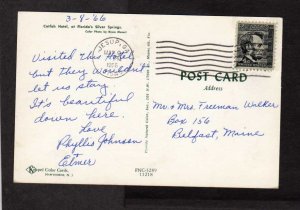 3-8-'66
Catfish Hotel, at Florida's Silver Springs.
Color Photo by Bruce Mozert
Visited This Hotel
but They Wouldn't
let us stay.
It's beautiful
down here.
Love
Phyllis Johnson
&
Elmer
Koppel Color Cards,
HAWTHORNE, N. J.
FNC-5289
15218
JESUP, GA.
1966
POST CARD
Address
Mr & Mrs Freeman Walker
Box 156
Belfast, Maine